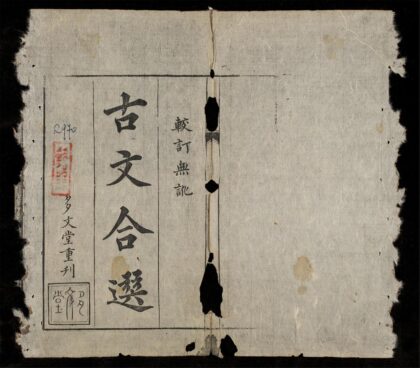 較訂無訛
古文合選
多文堂重刊